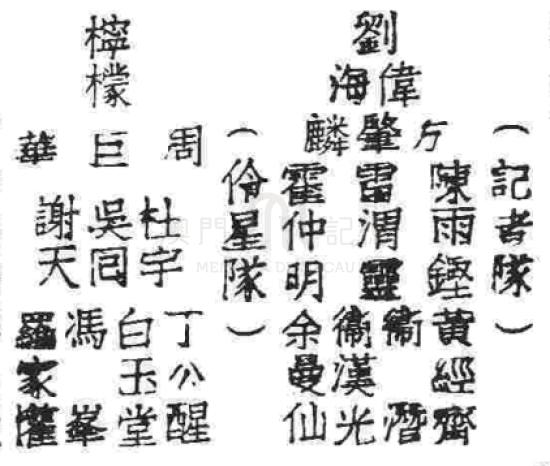 （記者隊）
劉偉海
方肇麟
陳雨鏗
雷渭靈
霍仲明
黃經齋
衞潛
衞漢光
余曼仙
（伶星隊）
檸檬
周巨華
杜宇
吳囘
謝天
丁公醒
白玉堂
馮峯
羅家權